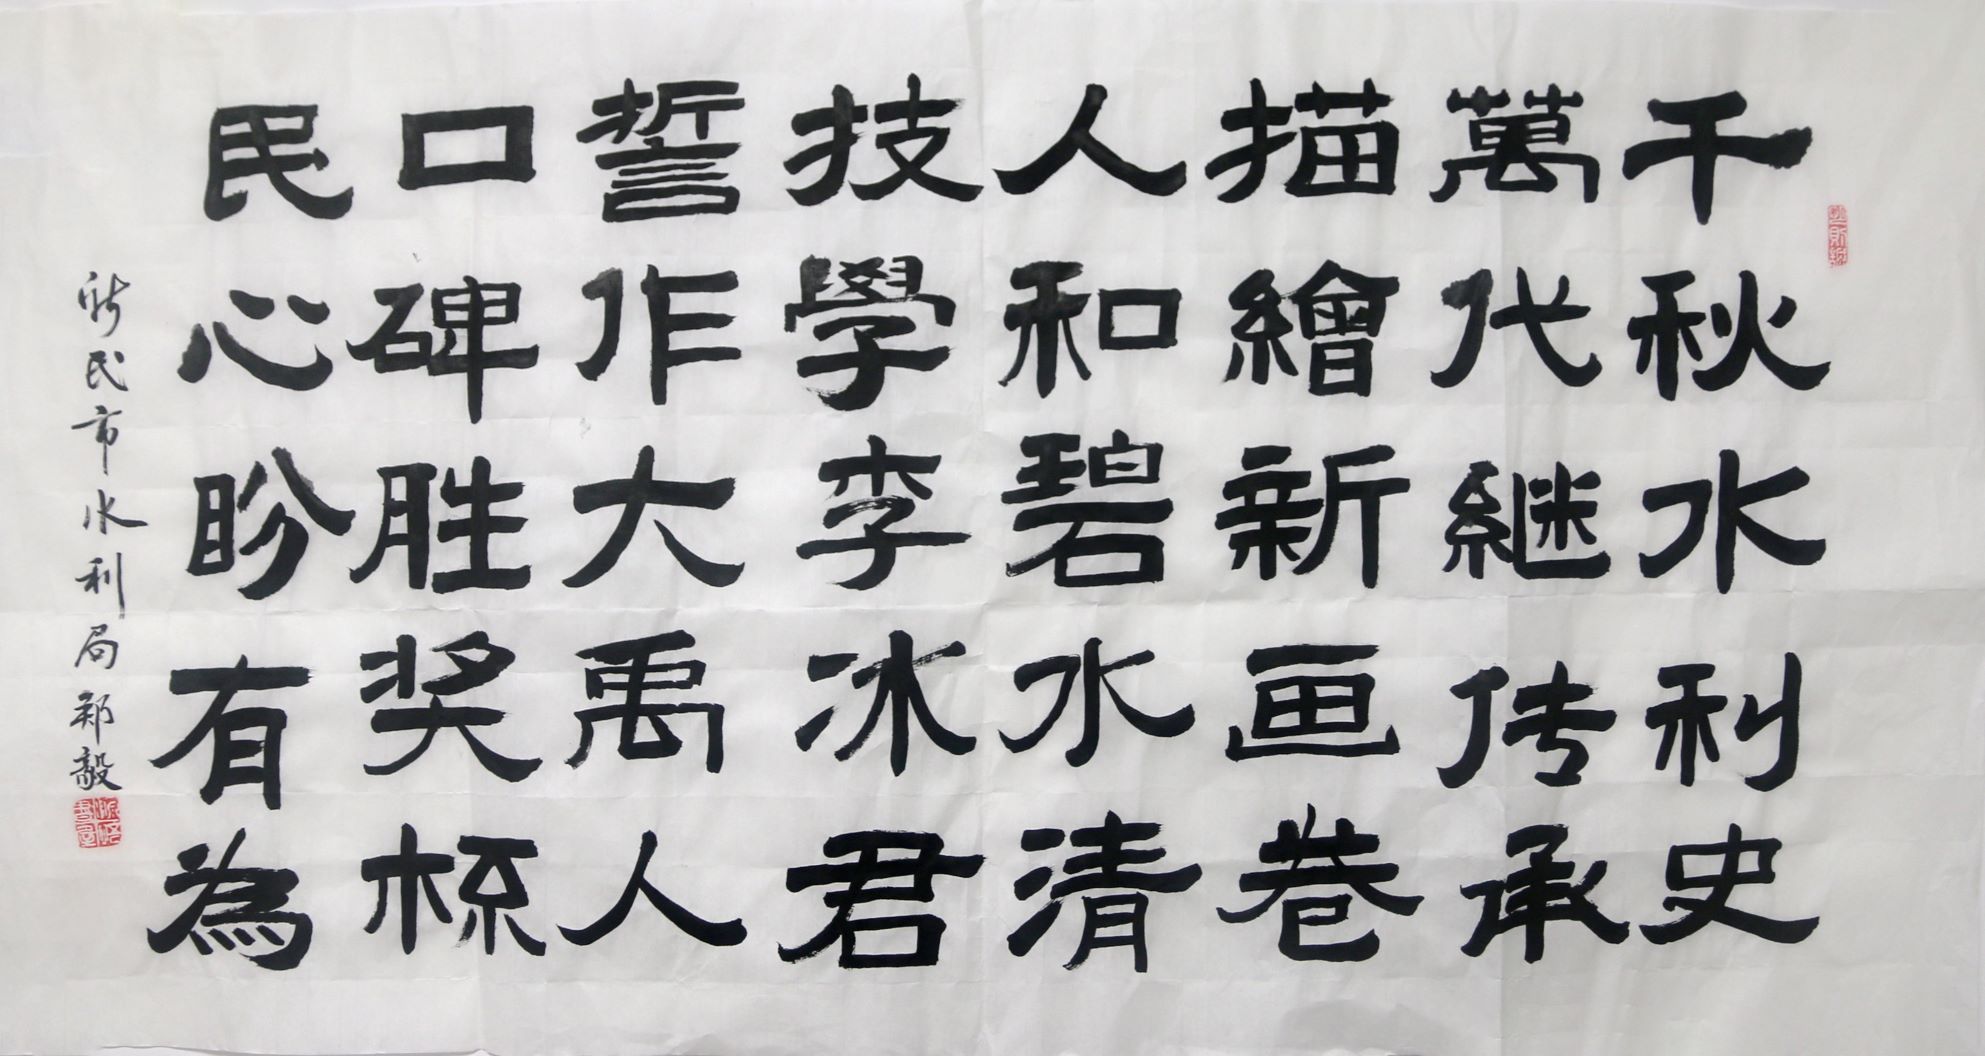 千秋水利史
萬代継传承
描繪新画卷
人和碧水清
技學李冰君
誓作大禹人
口碑胜奖杯
民心盼有為
新民市水利局郑毅